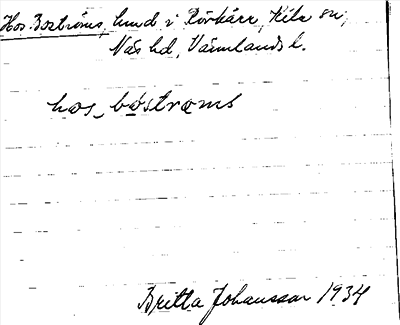 Hos Boströms, hund i Rörkärr, Kila sn,
Näs hd, Värmlands l.
hos boströms
Britta Johansson 1934